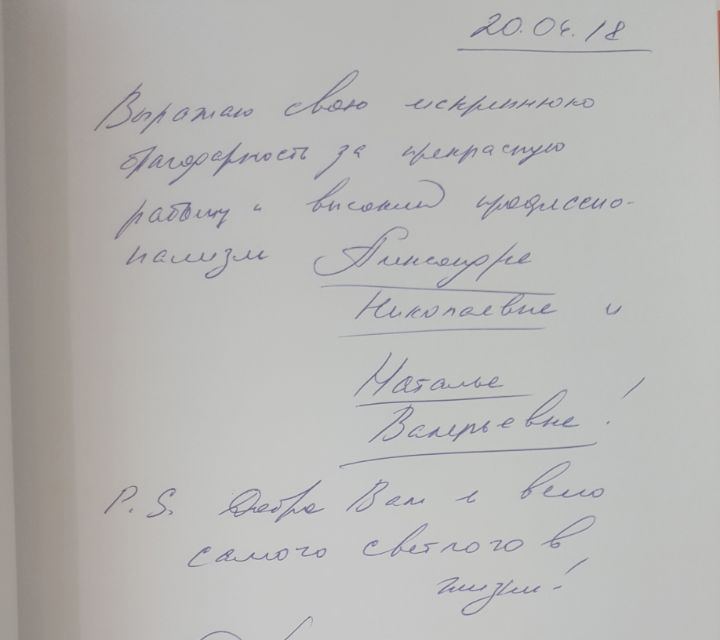 20.04.18
Выражаю свою искреннюю
благодарность за прекрасную
работу и высокий професcио-
нализм Александре
Николаевне и
Наталье
Валерьевне!
P.S. Добра Вам и всего
самого светлого в
жизни!